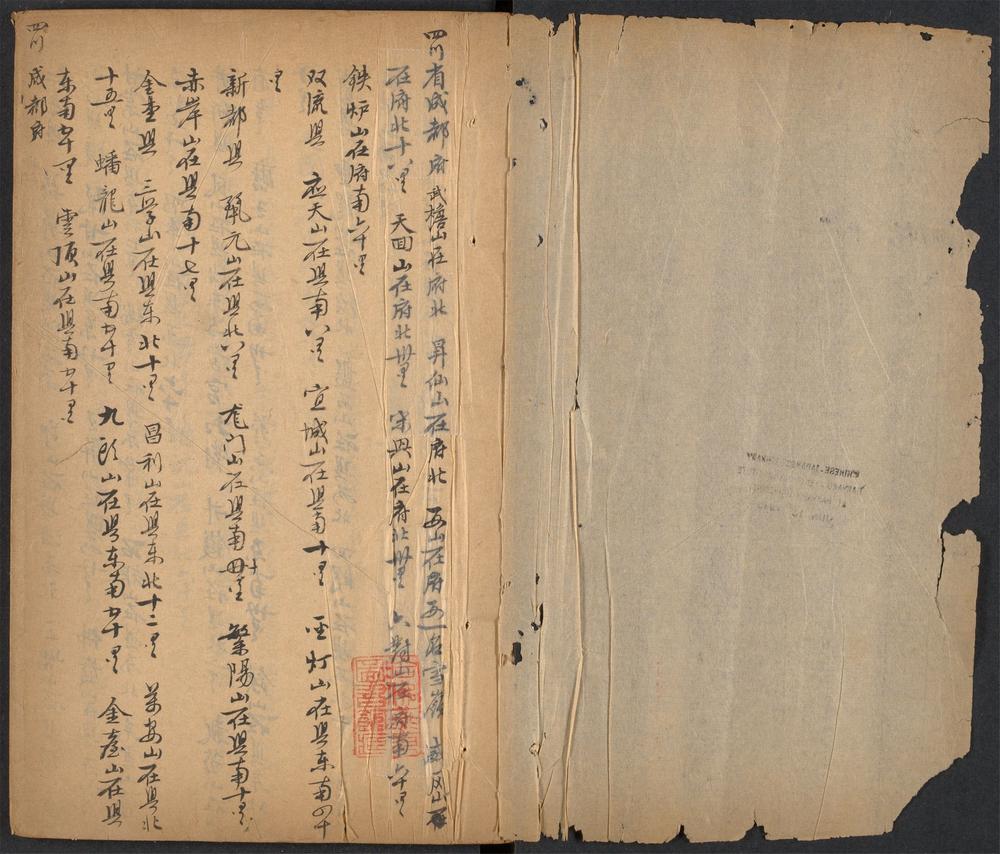 四川省成都府 武担山在府北 昇仙山在府北 西山在府西一名雪嶺 在
在府北十八里 天回山在府北卅里 宋興山在府北卅里 六對山在府南六十里
鉄炉山在府南六十里
双流县 应天山在县南八里 宜城山在县南十里 圣灯山在县东南四十
里
新都县 丽元山在县北八里 龙门山在县南里 繁陽山在县南十里
赤岸山在县南十七里
金堂县 三学山在县东北十里 昌利山在县东北十二里 萬安山在县北
十五里 蟠龍山在县南七十里 九頂山在县东南七十里 金臺山在县
东南七十里 雲顶山在县南七十里
四川 成都府